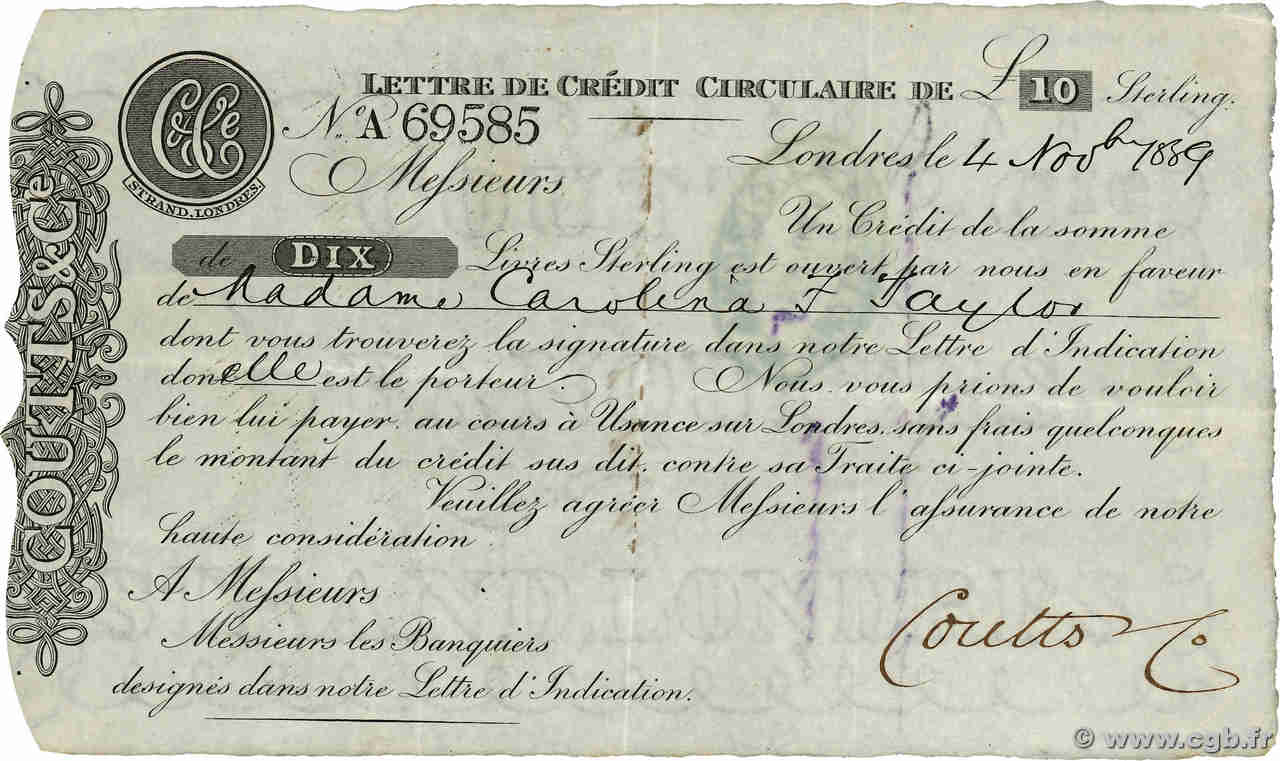 LETTRE DE CRÉDIT CIRCULAIRE DE £ 10 Sterling.
C & Ce
STRAND. LONDRES.
COUTTS & Cie
No. A 69585
Londres le 4 Novbr 1889
Messieurs
Un Crédit de la somme
de DIX Livres Sterling est ouvert par nous en faveur
de Madame Carolina F Taylor
dont vous trouverez la signature dans notre Lettre d'Indication
don elle est le porteur. Nous vous prions de vouloir
bien lui payer, au cours à Usance sur Londres, sans frais quelconques
le montant du crédit sus dit, contre sa Traite ci-jointe.
Veuillez agréer Messieurs l'assurance de notre
haute considération
A Messieurs
Messieurs les Banquiers
designés dans notre Lettre d'Indication.
Coutts & Co
© www.cgb.fr